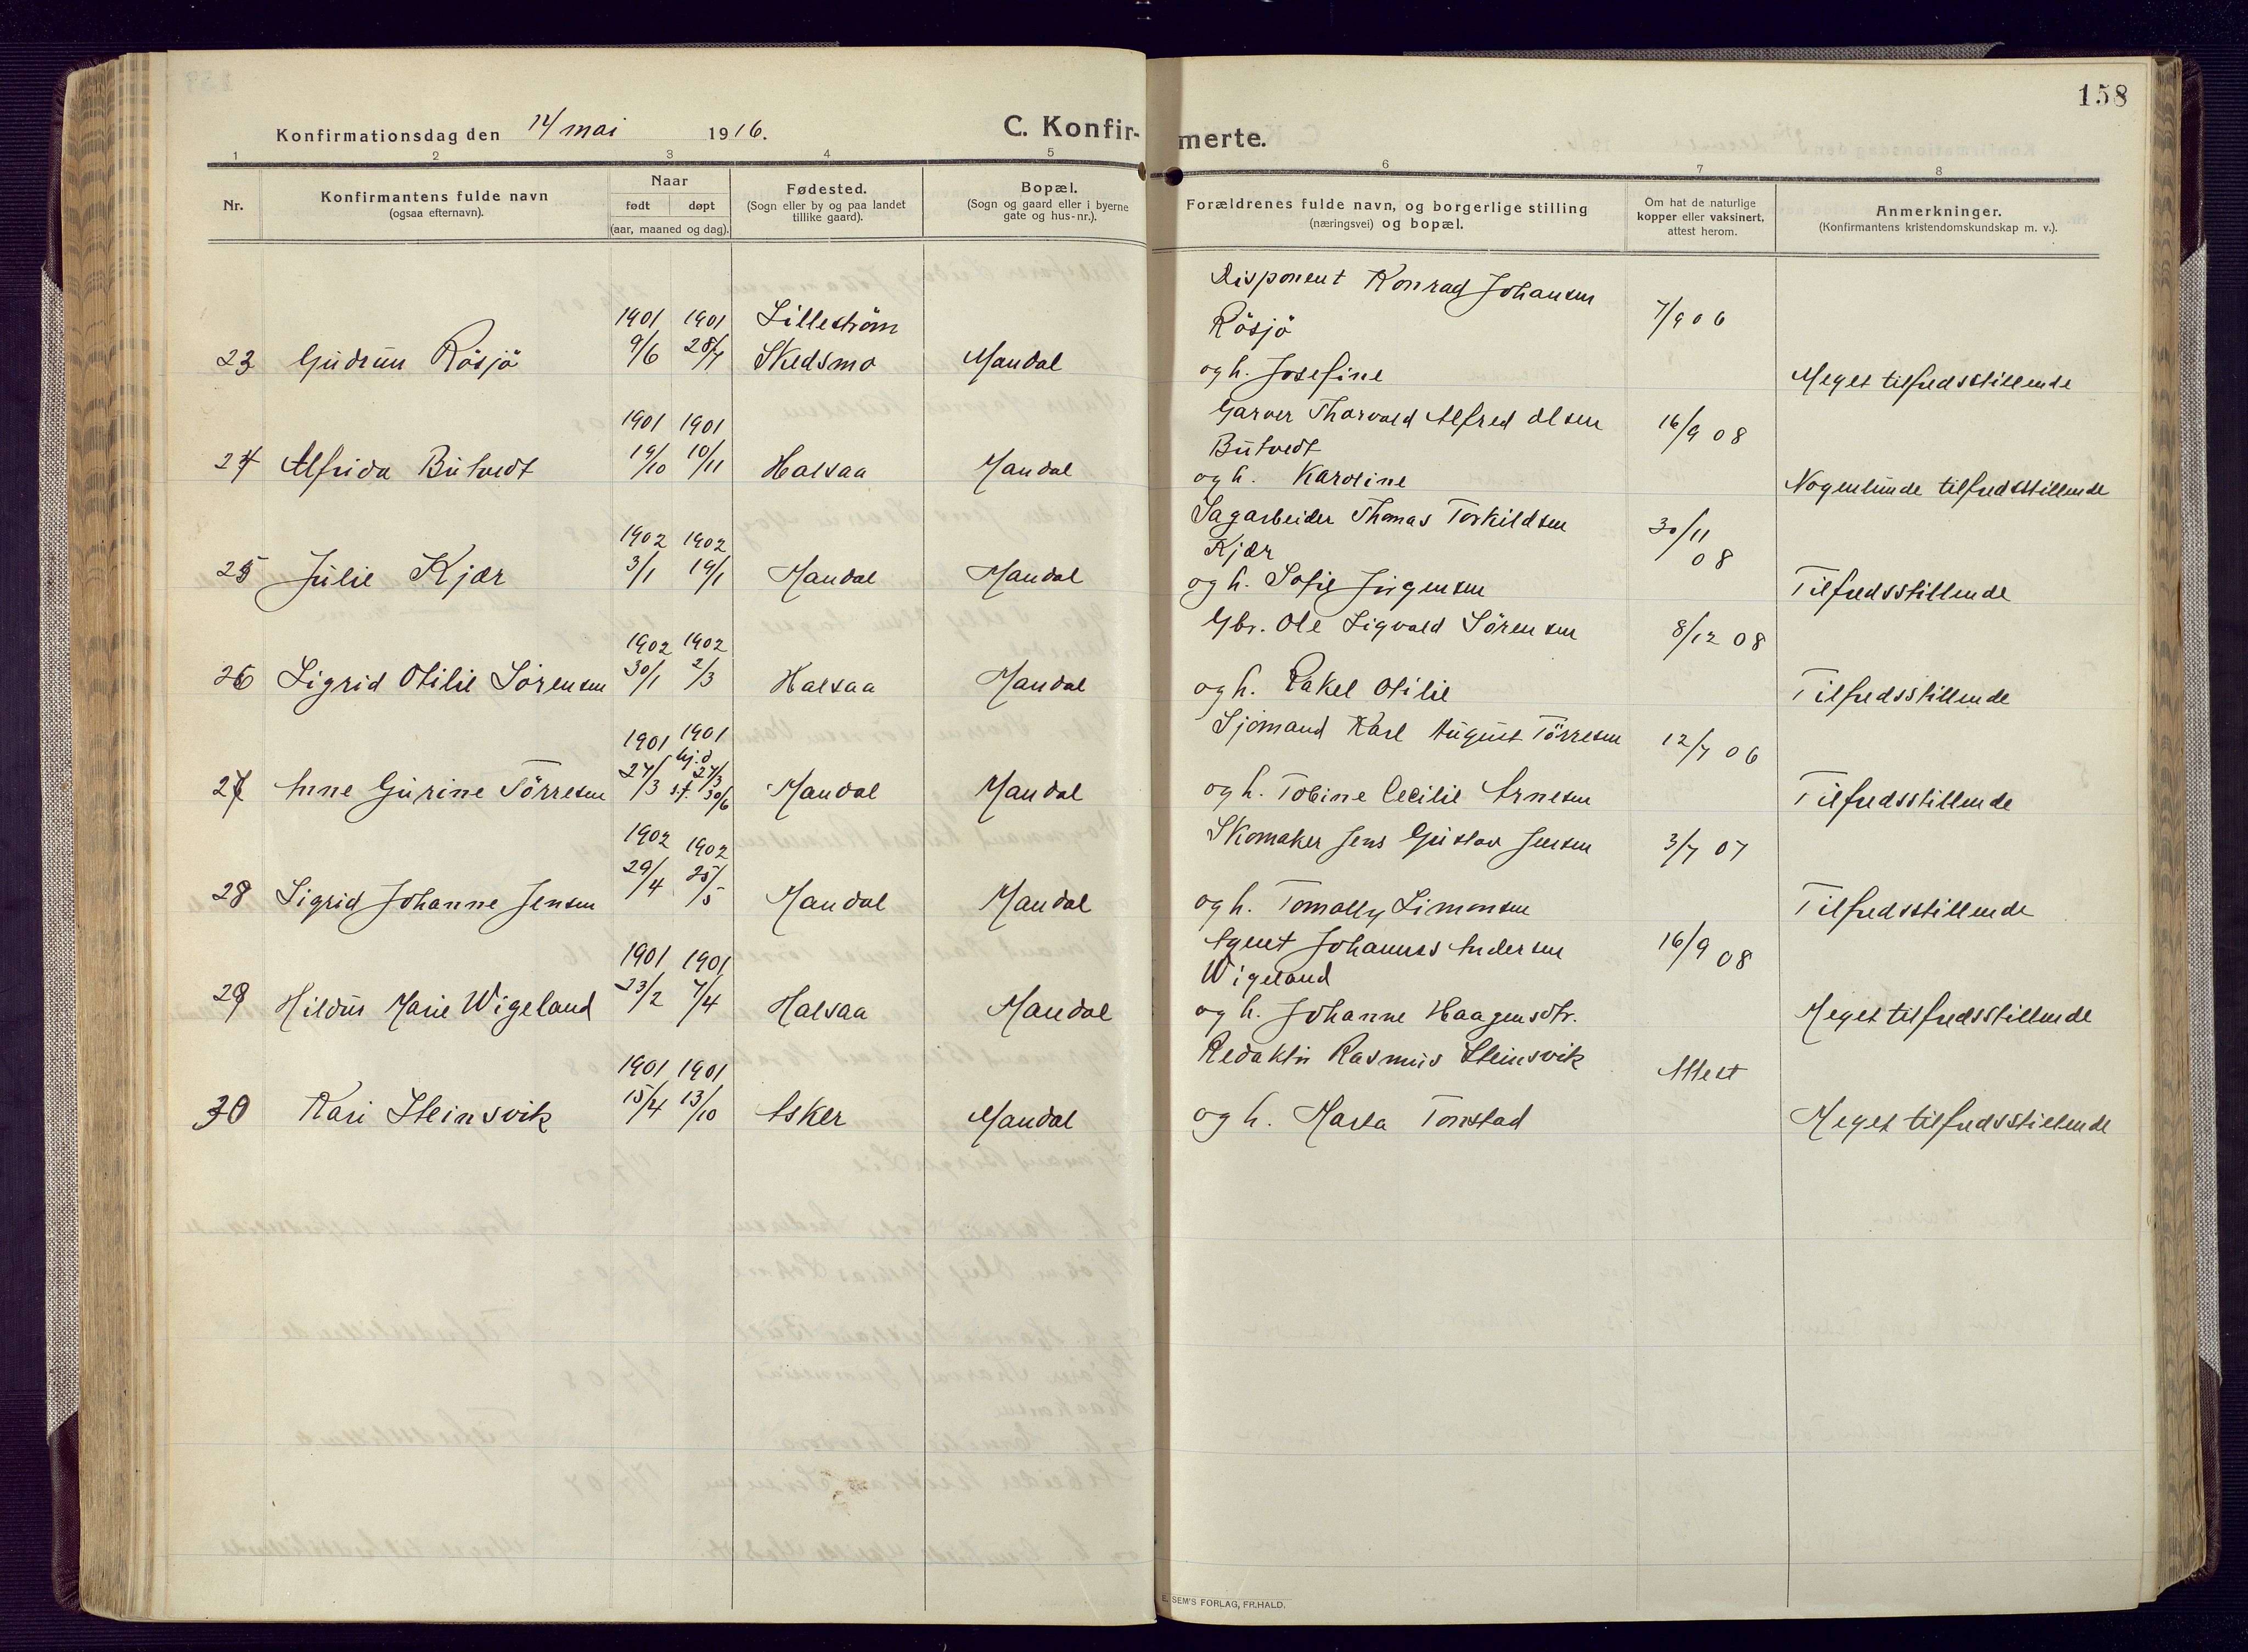 158
Konfirmationsdag den 14/ mai 1916.
C. Konfir-merte.
1 2 3 4 5 6 7 8
Nr.
Konfirmantens fulde navn
(ogsaa efternavn).
Naar
født døpt
(aar, maaned og dag).
Fødested.
(Sogn eller by og paa landet
tillike gaard).
Bopæl.
(Sogn og gaard eller i byerne
gate og hus-nr.).
Forældrenes fulde navn, og borgerlige stilling
(næringsvei) og bopæl.
Om hat de naturlige
kopper eller vaksinert,
attest herom.
Anmerkninger.
(Konfirmantens kristendomskundskap m. v.).
Disponent Konrad Johansen
1901 1901 Lilleström Rösjö 7/9 06
23 Gudrun Rösjö 9/6 28/7 Skedsmo Mandal og h. Josefine Meget tilfredsstillende
1901 1901 Garver Thorvald Alfred Olsen 16/9 08
Butvedt
24 Alfrida Butvedt 19/10 10/11 Halsaa Mandal og h. Karoline Nogenlunde tilfredsstillende
1902 1902 Sagarbeider Thomas Torkildsen 30/11 08
Kjær
25 Julie Kjær 3/1 19/1 Mandal Mandal og h. Sofie Jörgensen Tilfredsstillende
1902 1902 Gbr. Ole Sigvald Sörensen 8/12 08
26 Sigrid Otilie Sörensen 30/1 2/3 Halsaa Mandal og h. Rakel Otilie Tilfredsstillende
1901 1901 Sjömand Karl August Törresen 12/7 06
hj.d
27 Anne Gurine Törresen 27/3 27/3 s.f. 30/6 Mandal Mandal og h. Tobine Cecilie Arnesen Tilfredsstillende
1902 1902 Skomaker Jens Gustav Jensen 3/7 07
28 Sigrid Johanne Jensen 29/4 25/5 Mandal Mandal og h. Tomally Simonsen Tilfredsstillende
1901 1901 Agent Johannes Andersen 16/9 08
Wigeland
29 Hildur Marie Wigeland 23/2 7/4 Halsaa Mandal og h. Johanne Haagensdtr. Meget tilfredsstillende
1901 1901 Redaktör Rasmus Steinsvik Attest
30 Kari Steinsvik 15/4 13/10 Asker Mandal og h. Marta Tonstad Meget tilfredsstillende
E. SEM'S FORLAG, FR.HALD.